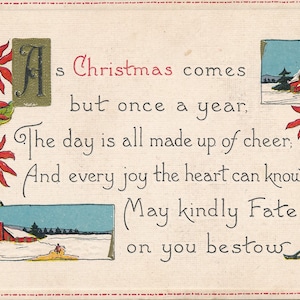 As Christmas comes
but once a year,
The day is all made up of cheer;
And every joy the heart can know
May kindly Fate
on you bestow